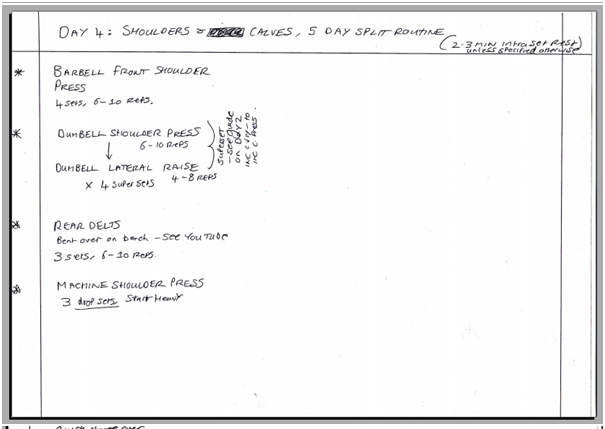 DAY 4: SHOULDERS & CALVES, 5 DAY SPLIT ROUTINE
(2-3 MIN intra set Rest)
unless specified otherwise
* BARBELL FRONT SHOULDER
PRESS
4 sets, 6-10 Reps.
* DUMBELL SHOULDER PRESS
6-10 REPS
↓
DUMBELL LATERAL RAISE
4-8 REPS
x 4 super sets
superset
- see guide
on DAY 2
* REAR DELTS
Bent over on bench - SEE YOUTUBE
3 sets, 6-10 Reps.
* MACHINE SHOULDER PRESS
3 drop sets, Start Heavy